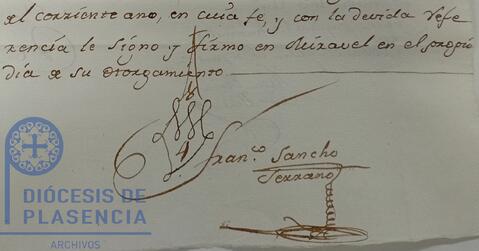 el corriente ano, en cuia fe, y con la devida refe
rencia le signo y firmo en Miravel en el propio
dia de su otorgamiento
Fran.co Sancho
Serrano
DIÓCESIS DE
PLASENCIA
ARCHIVOS